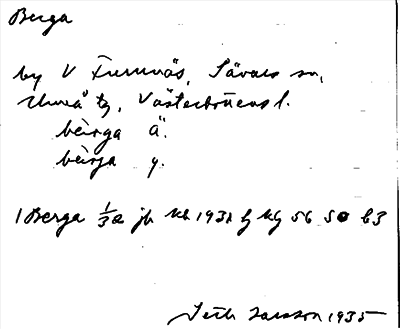 Berga
by V Furunäs, Sävars sn,
Umeå tg, Västerbottens l.
bèrga ä.
bèrja y.
1 Berga 1/3 a jb 1931 56 50 63
Seth Larsson 1935